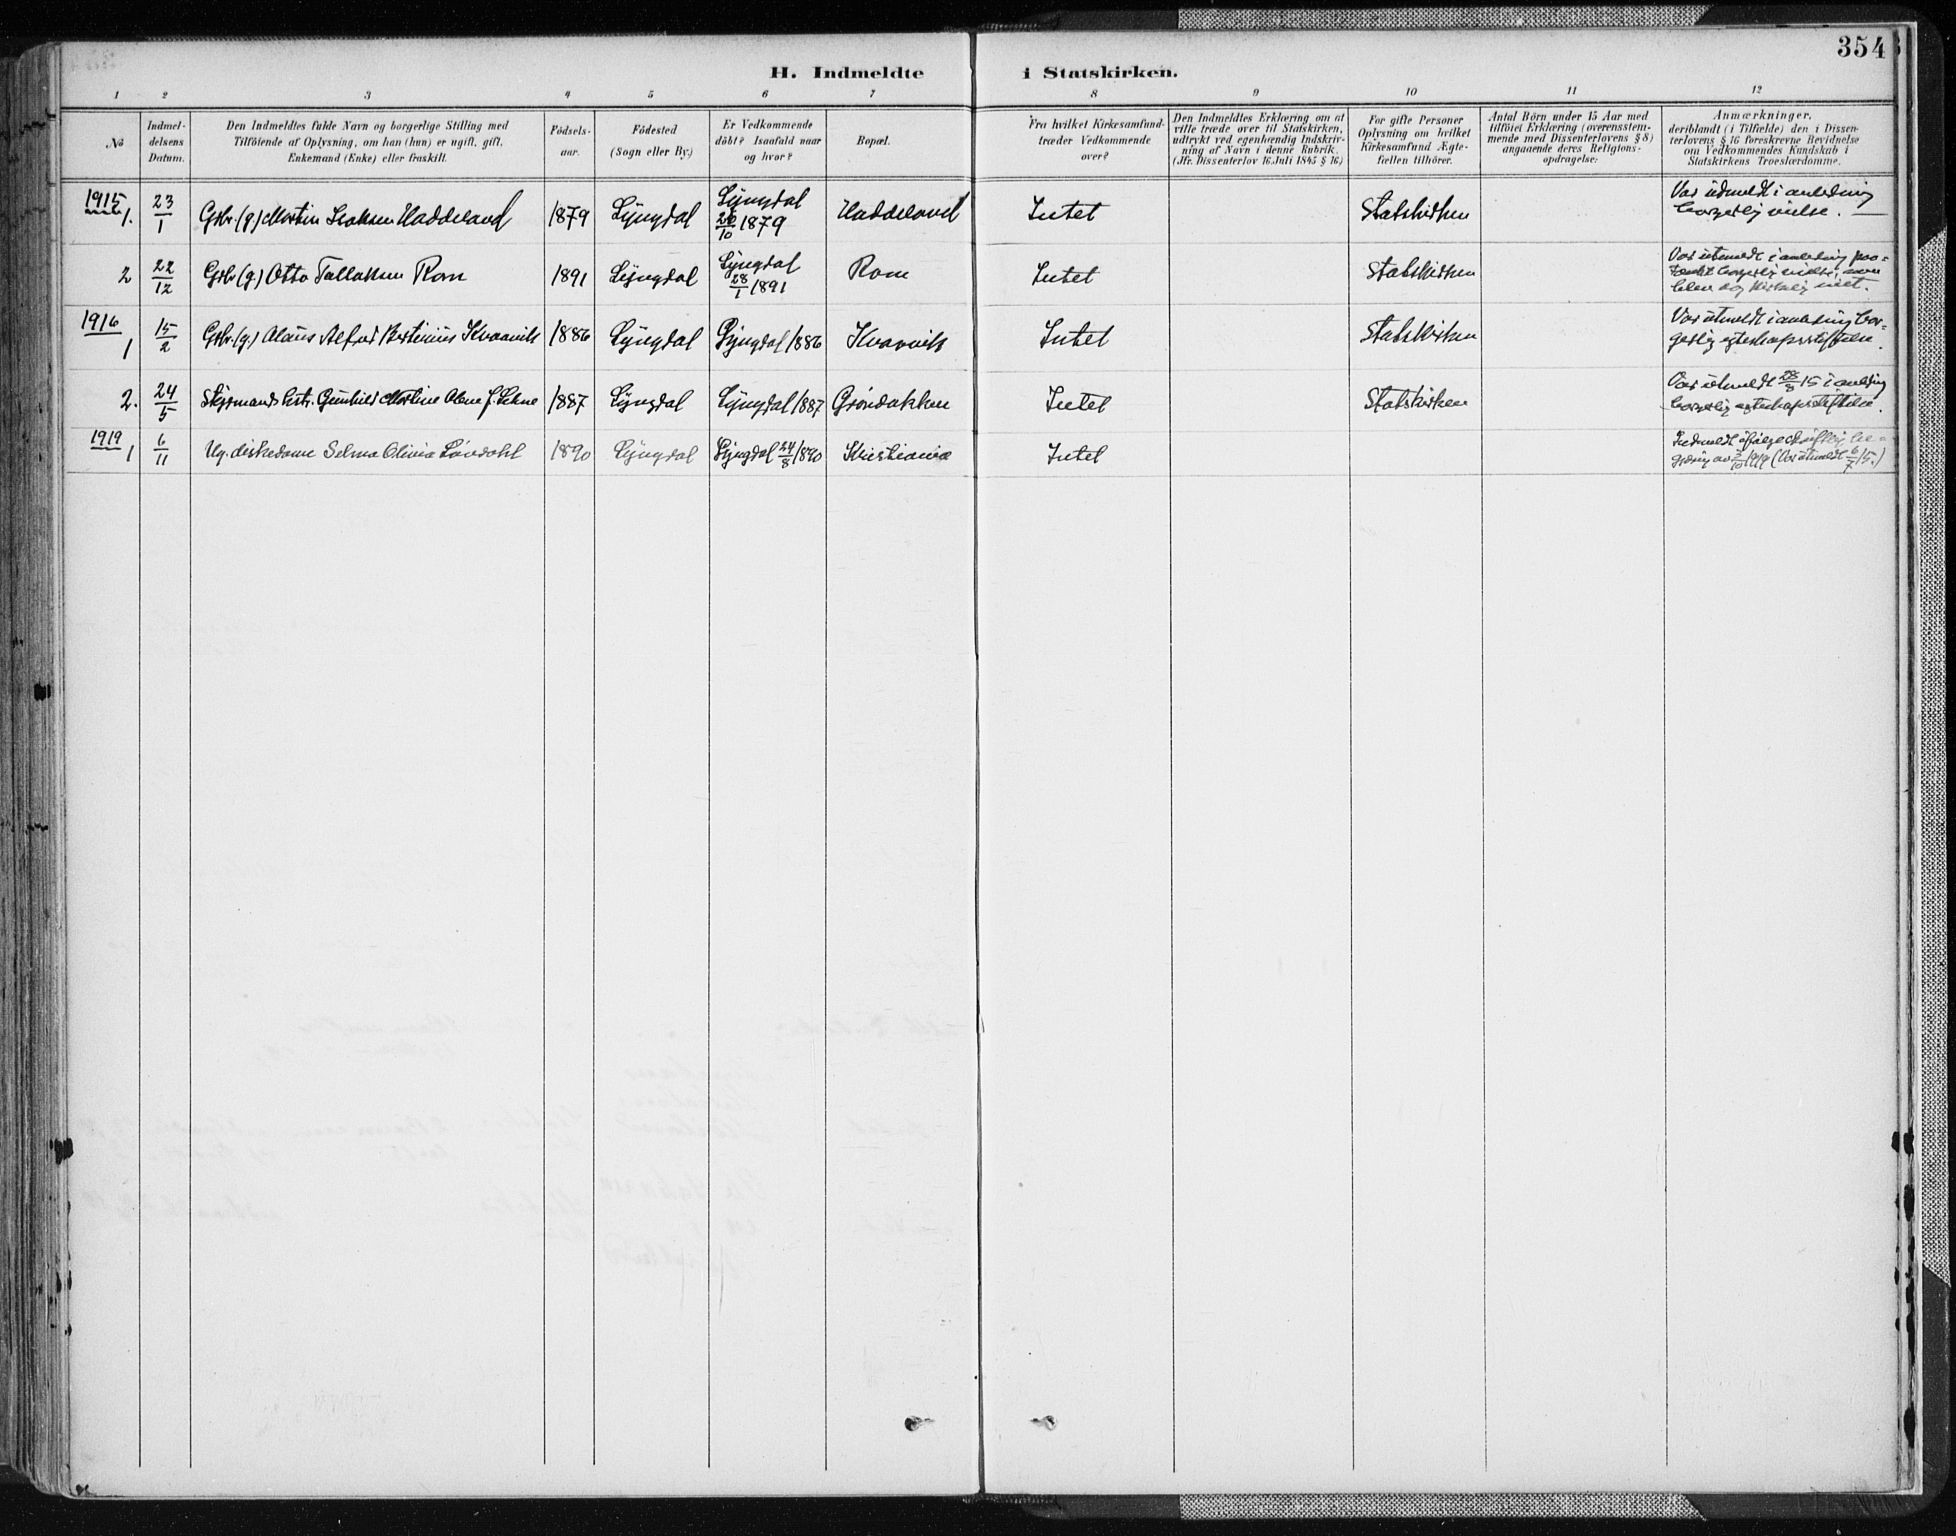 354
H. Indmeldte i Statskirken.
1 2 3 4 5 6 7 8 9 10 11 12
No
Indmel-
delsens
Datum.
Den Indmeldtes fulde Navn og borgerlige Stilling med
Tilföiende af Oplysning, om han (hun) er ugift, gift,
Enkemand (Enke) eller fraskilt.
Födsels-
aar.
Födested
(Sogn eller By.)
Er Vedkommende
döbt? Isaafald naar
og hvor?
Bopæl.
Fra hvilket Kirkesamfund
træder Vedkommende
over?
Den Indmeldtes Erklæring om at
ville træde over til Statskirken,
udtrykt ved egenhændig Indskriv-
ning af Navn i denne Rubrik.
(Jfr. Dissenterlov 16 Juli 1845 § 16)
For gifte Personer
Oplysning om hvilket
Kirkesamfund Ægte-
fællen tilhörer.
Antal Börn under 15 Aar med
tilföiet Erklæring (overensstem-
mende med Dissenterlovens § 8)
angaaende deres Religions-
opdragelse:
Anmærkninger,
deriblandt (i Tilfælde) den i Dissen-
terlovens § 16 foreskrevne Bevidnelse
om Vedkommendes Kundskab i
Statskirkens Troeslærdomme.
1915
1. 23/1 Gbr. (g) Martin Isaksen Haddeland 1879 Lyngdal Lyngdal 26/10 1879 Haddeland Intet Statskirken Var udmeldt i anledning
borgerlig vielse.
2 22/12 Gbr (g.) Otto Tallaksen Rom 1891 Lyngdal Lyngdal 28/1 1891 Rom Intet Statskirken Var utmeldt i anledning paa-
tænkt borgerlig vielse, men
blev dog kirkelig viet.
1916
1 15/2 Gbr. (g) Alfred Bertinius Kvaavik 1886 Lyngdal Lyngdal 1886 Kvavik Intet Statskirken Var utmeldt i anledning bor-
gerlig egteskapsstiftelse.
2. 24/5 Styrmands Gunhild Martine Olene 1887 Lyngdal Lyngdal 1887 Grøndokken Intet Statskirken Var utmeldt 28/8 15 i anledning
borgerlig egteskapsstiftelse.
1919
1 6/11 Ug. diskedame Selma Olivia Løvdahl 1890 Lyngdal Lyngdal 24/8 1890 Kristiania Intet Indmeldt ifølge skriftlig be-
gjæring av 1919 (Var utmeldt 6/7 15.)